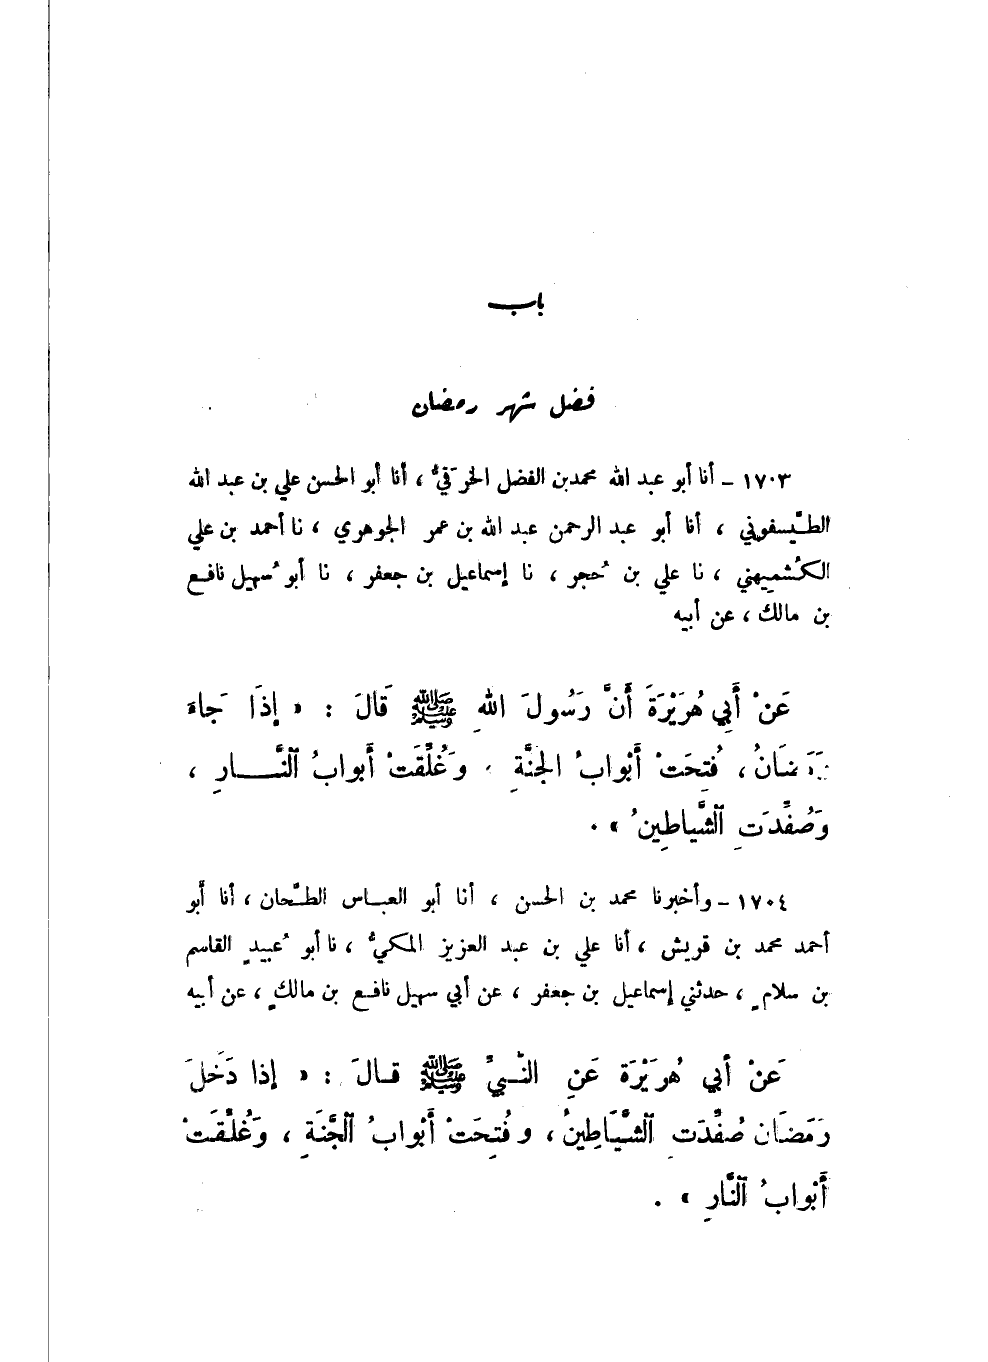 باب
فضل شهر رمضان
١٧٠٣ – أنا أبو عبد الله محمدبن الفضل الخرَقيُّ ، أنا أبو الحسن علي بن عبد الله
الطَّيسفوني ، أنا أبو عبد الرحمن عبد الله بن عمر الجوهري ، نا أحمد بن علي
الكُشمِيهني ، نا علي بن حُجر ، نا إسماعيل بن جعفر ، نا أبو سُهيل نافع
بن مالك ، عن أبيه
عَنْ أَبِي هُرَيْرَةَ أَنَّ رَسُولَ اللهِ ﷺ قَالَ : « إِذَا جَاءَ
رَمَضَانُ ، فُتِحَتْ أَبْوابُ الجَنَّةِ ، وَغُلِّقَتْ أَبوابُ ٱلنَّــارِ ،
وَصُفِّدَتِ ٱلشَّياطِينُ » .
١٧٠٤ – وأخبرنا محمد بن الحسن ، أنا أبو العبـاس الطـَّحان ، أنا أبو
أحمد محمد بن قريش ، أنا علي بن عبد العزيز المكيُّ ، نا أبو عُبيدٍ القاسم
بن سلامٍ ، حدثني إسماعيل بن جعفر ، عن أبي سهيل نافـع بن مالكٍ ، عن أبيه
عَنْ أَبي هُرَيْرَة عَنِ النَّـبيِّ ﷺ قـالَ : « إذا دَخَلَ
رَمَضَان صُفِّدَتِ ٱلشَّيَاطِينُ ، وفُتِحَتْ أَبْوابُ ٱلجَّنَةِ ، وَغُلِّقَتْ
أَبْوابُ ٱلنَّارِ » .